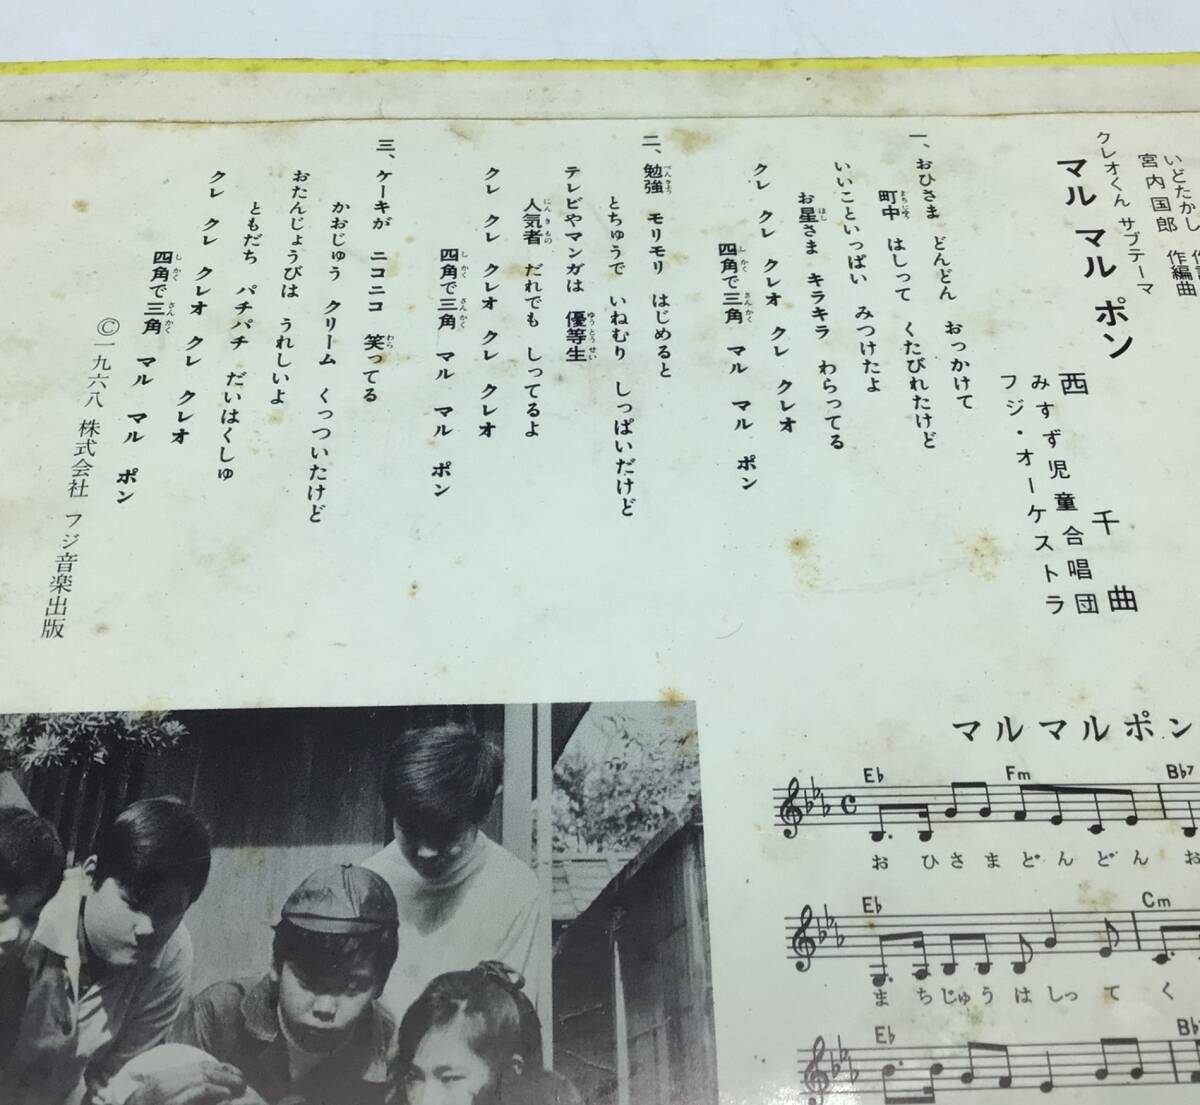 いどたかし 作詞
宮内国郎 作編曲
クレオくん サブテーマ
マル マル ポン
西 千 曲
みすず児童合唱団
フジ・オーケストラ
一、おひさま どんどん おっかけて
町中 はしって くたびれたけど
いいこといっぱい みつけたよ
お星さま キラキラ わらってる
クレ クレ クレオ クレ クレオ
四角で三角 マル マル ポン
二、勉強 モリモリ はじめると
とちゅうで いねむり しっぱいだけど
テレビやマンガは 優等生
人気者 だれでも しってるよ
クレ クレ クレオ クレ クレオ
四角で三角 マル マル ポン
三、ケーキが ニコニコ 笑ってる
かおじゅう クリーム くっついたけど
おたんじょうびは うれしいよ
ともだち パチパチ だいはくしゅ
クレ クレ クレオ クレ クレオ
四角で三角 マル マル ポン
©一九六八 株式会社 フジ音楽出版
マルマルポン
E♭ Fm B♭7
おひさまどんどん お
E♭ Cm
まちじゅうはしって く
E♭ B♭7